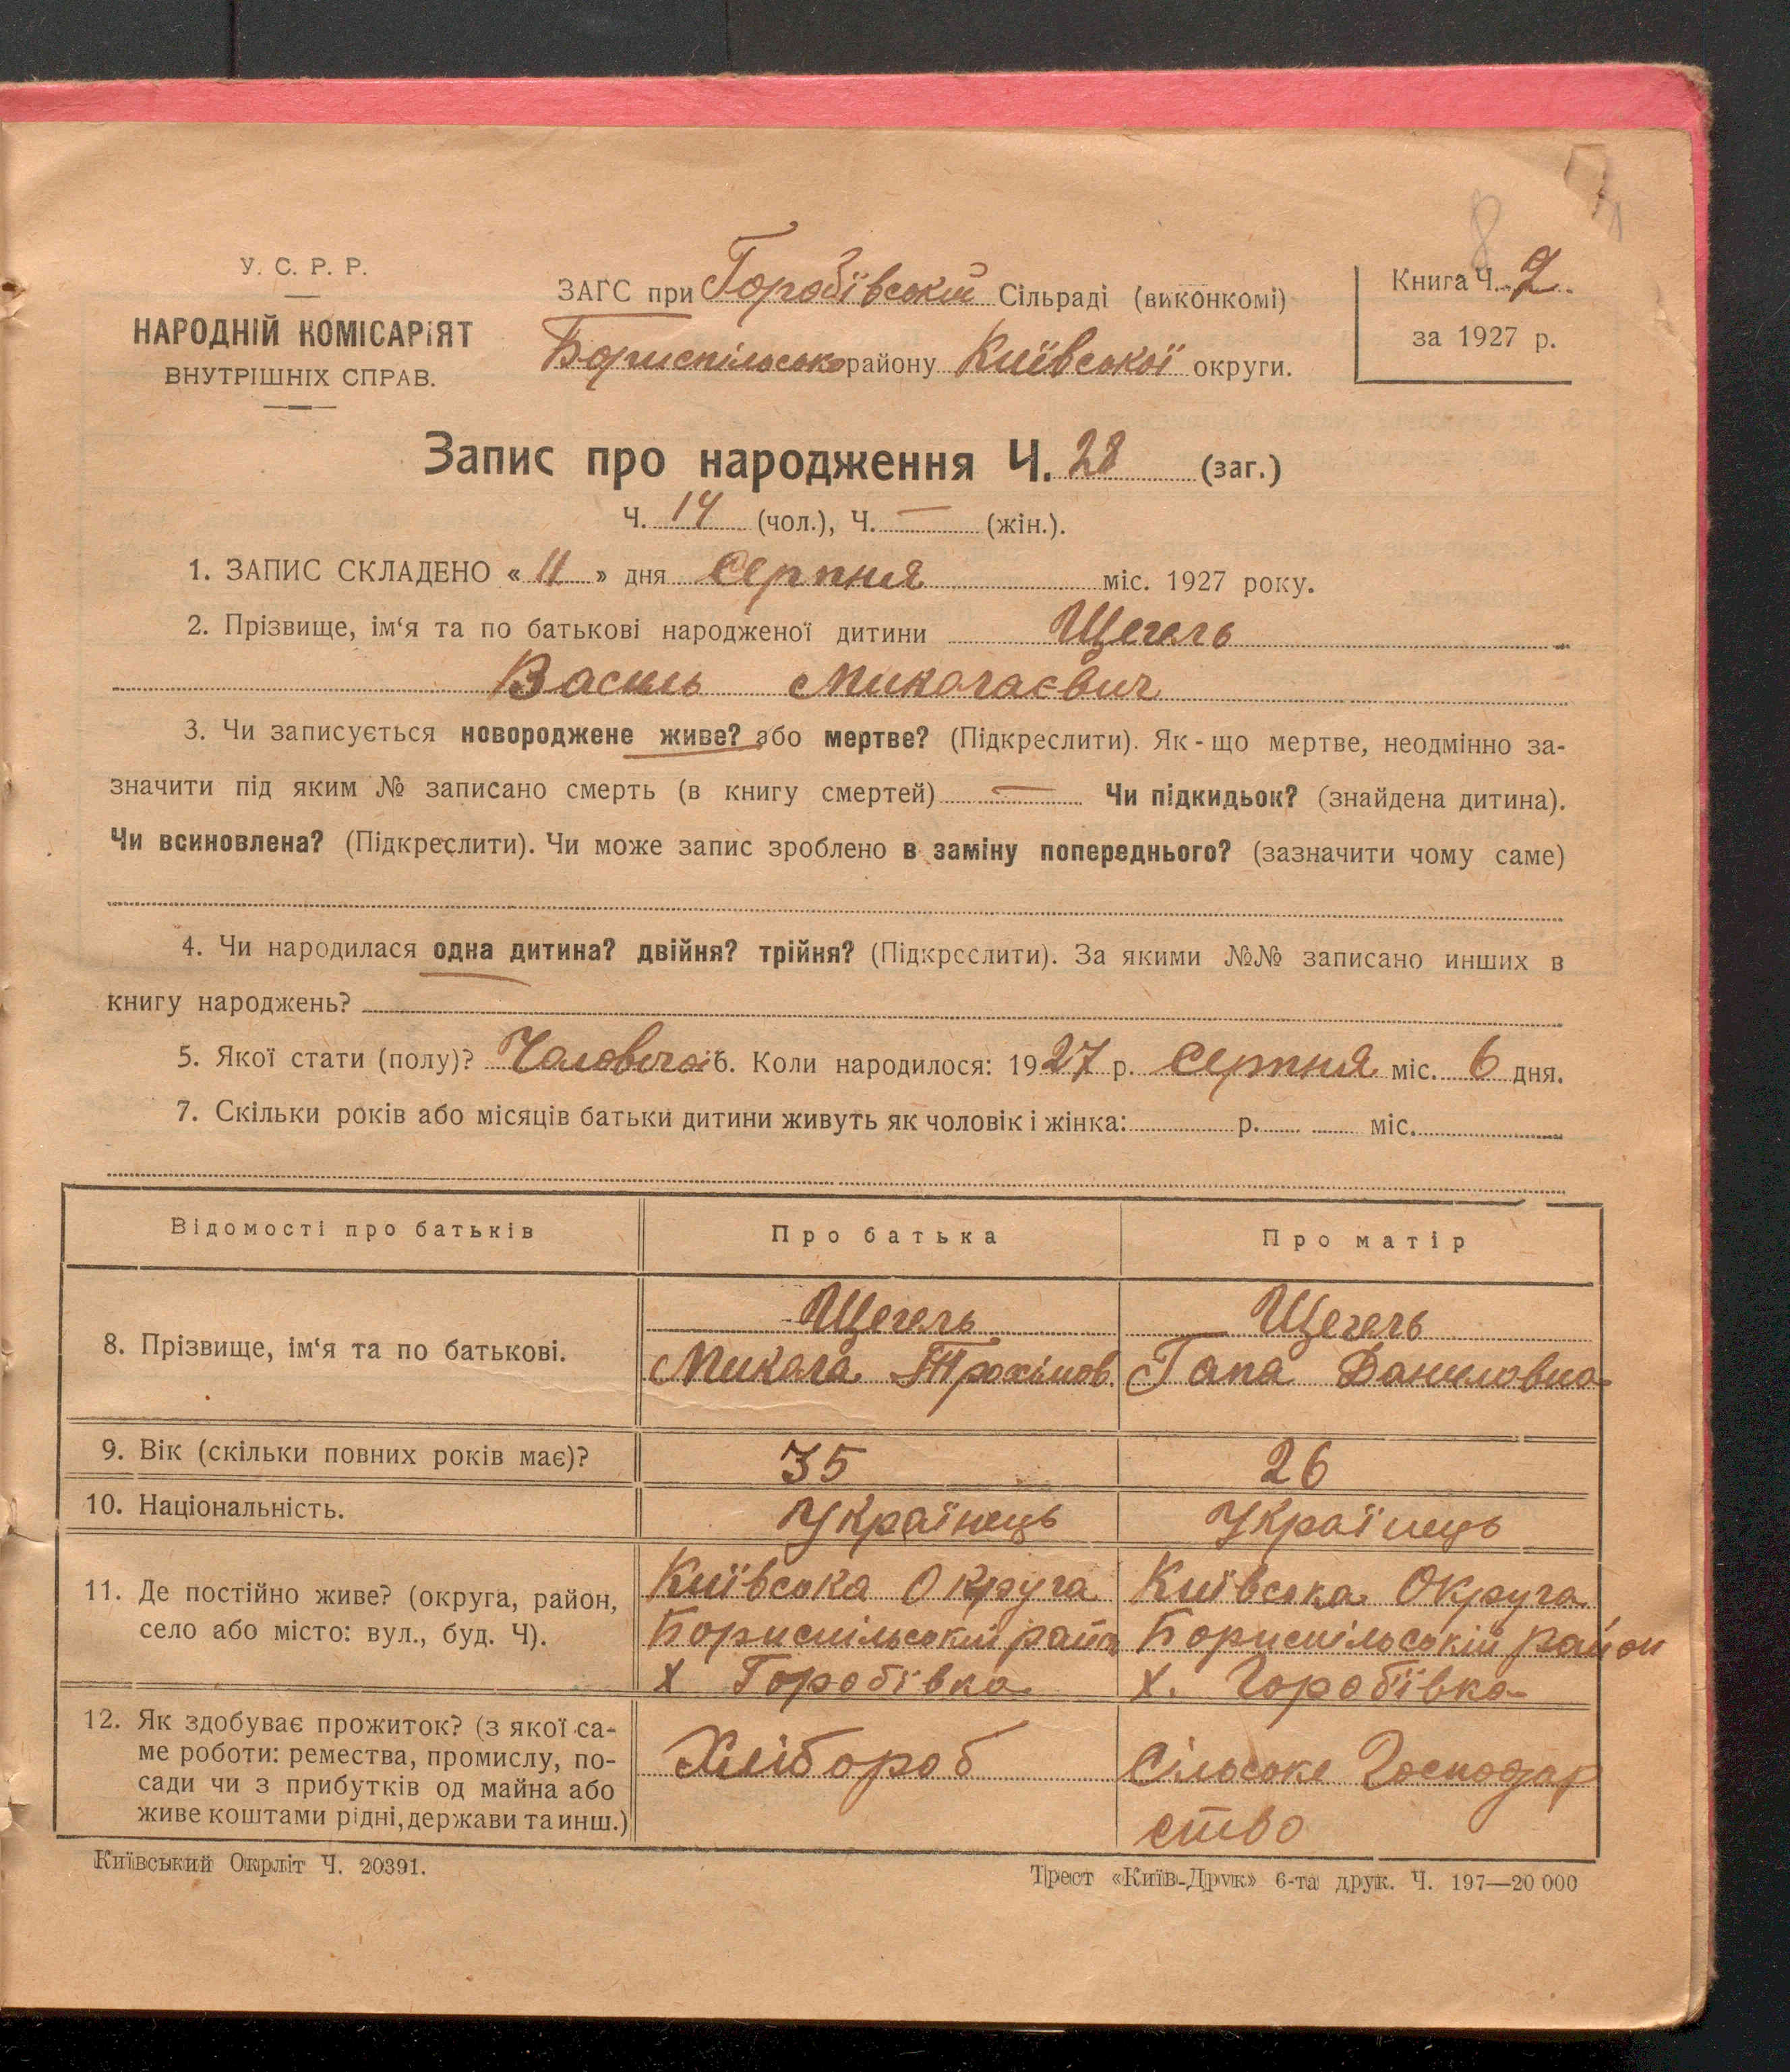 8
У. С. Р. Р.
НАРОДНІЙ КОМІСАРІЯТ
ВНУТРІШНІХ СПРАВ.
ЗАГС при Горобївській Сільраді (виконкомі)
Бориспільсько району Київської округи.
Книга Ч. 2
за 1927 р.
Запис про народження Ч. 28 (заг.)
Ч. 14 (чол.), Ч. — (жін.).
1. ЗАПИС СКЛАДЕНО « 11 » дня Серпня міс. 1927 року.
2. Прізвище, ім‘я та по батькові народженої дитини Щегель
Василь Миколаєвич
3. Чи записується новороджене живе? або мертве? (Підкреслити). Як-що мертве, неодмінно за-
значити під яким № записано смерть (в книгу смертей) — Чи підкидьок? (знайдена дитина).
Чи всиновлена? (Підкреслити). Чи може запис зроблено в заміну попереднього? (зазначити чому саме)
4. Чи народилася одна дитина? двійня? трійня? (Підкреслити). За якими №№ записано инших в
книгу народжень?
5. Якої стати (полу)? Чоловічої 6. Коли народилося: 1927 р. Серпня міс. 6 дня.
7. Скільки років або місяців батьки дитини живуть як чоловік і жінка: р. міс.
Відомості про батьків Про батька Про матір
8. Прізвище, ім‘я та по батькові.
Щегель
Микола Трохимов.
Щегель
Гапа Даниловна
9. Вік (скільки повних років має)? 35 26
10. Національність. Українець Українець
11. Де постійно живе? (округа, район,
село або місто: вул., буд. Ч).
Київська Округа
Бориспільський район
х Горобївка
Київська Округа
Бориспільській район
х. Горобївка
12. Як здобуває прожиток? (з якої са-
ме роботи: ремества, промислу, по-
сади чи з прибутків од майна або
живе коштами рідні, держави та инш.)
Хлібороб
Сільське Господар
ство
Київський Окрліт Ч. 20391.
Трест «Київ-Друк» 6-та друк. Ч. 197—20 000